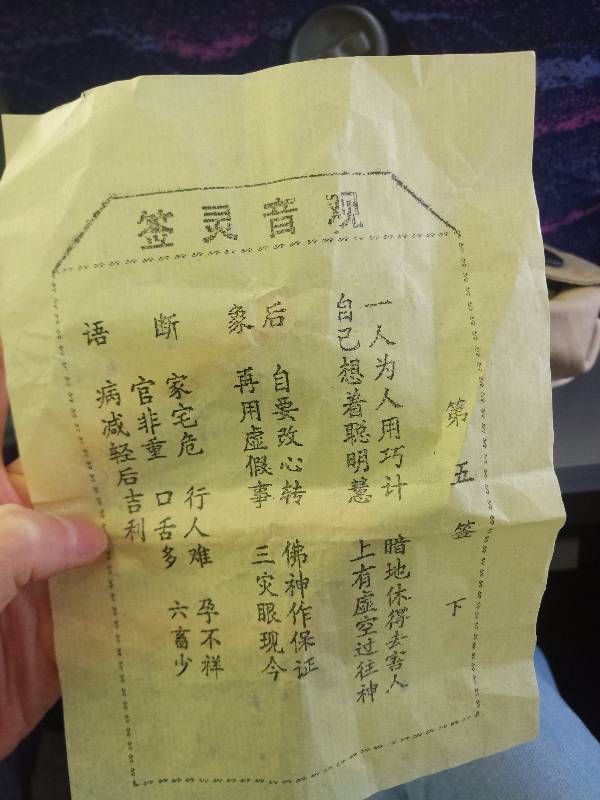 观音灵签
第五签 下
一人为人用巧计 暗地休得去害人
自己想着聪明慧 上有虚空过往神
后 自要改心转 佛神作保证
象 再用虚假事 三灾眼现今
家宅危 行人难 孕不祥
断 官非重 口舌多 六畜少
语 病减轻后吉利